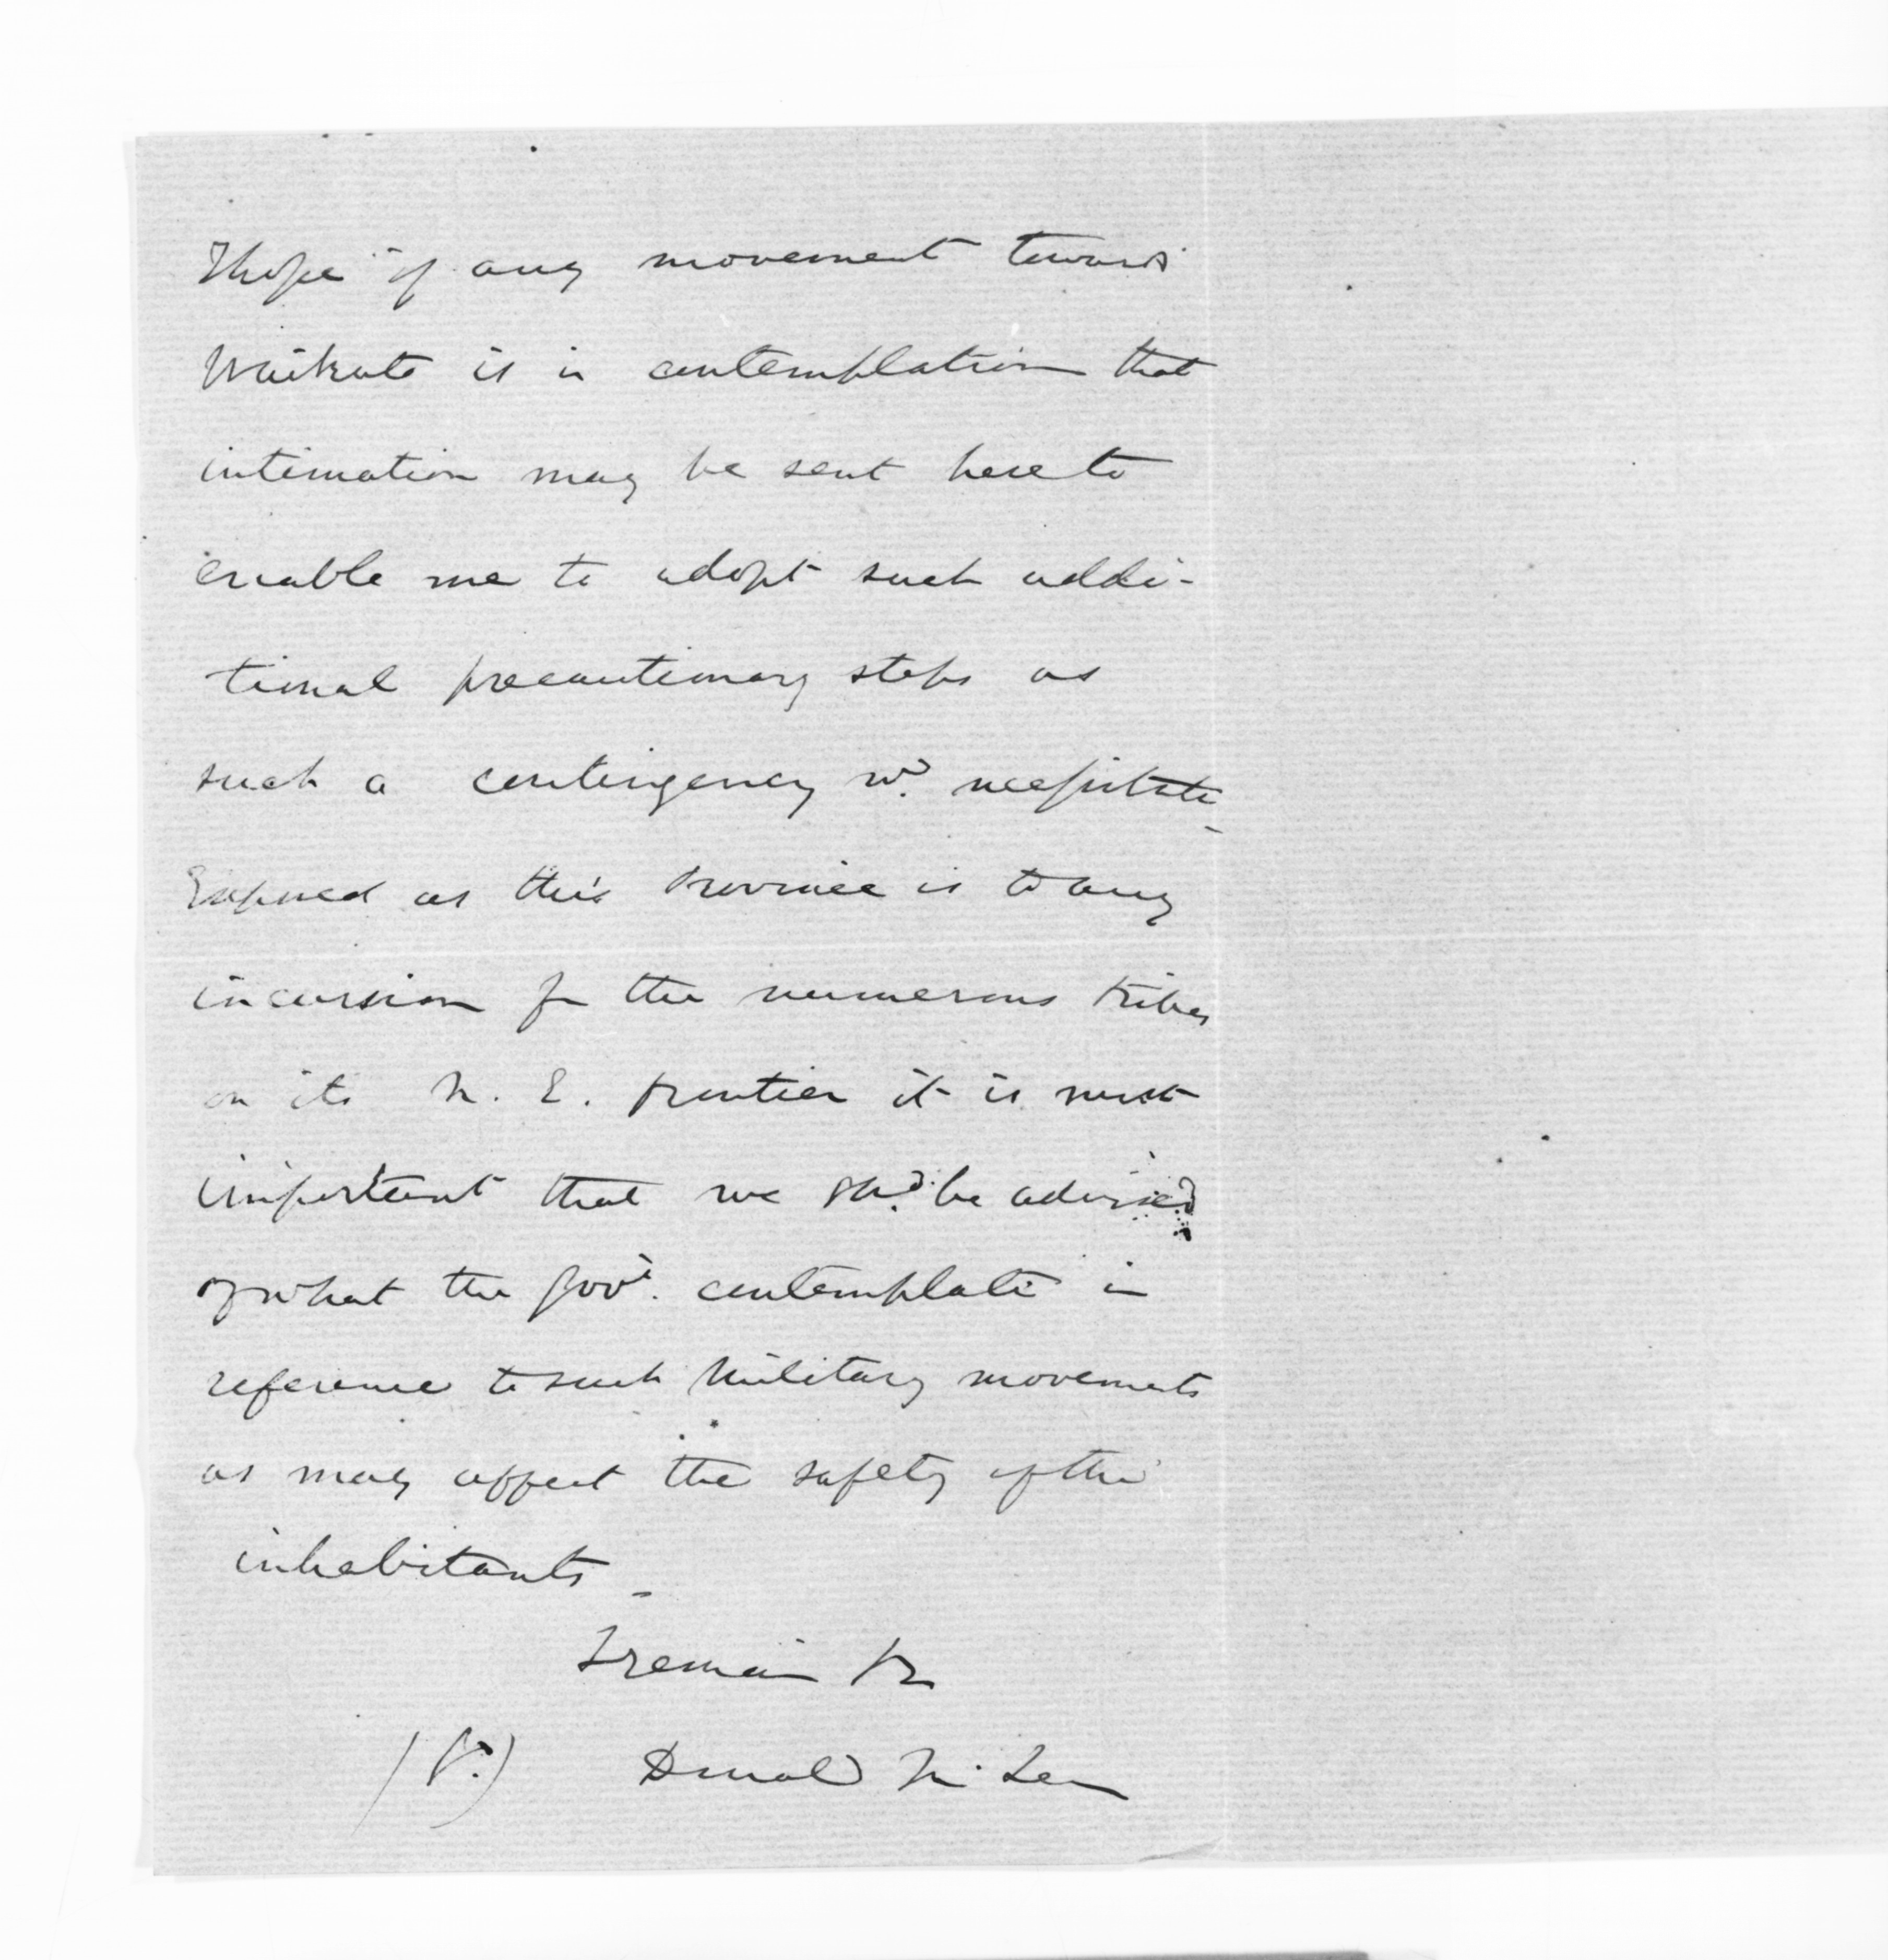 I hope if any movement towards
Waikato is in contemplation that
intimation may be sent here to
enable me to adopt such addi-
tional precautionary steps as
such a contingency wd. necessitate
Exposed as this Province is to any
incursion fm the numerous tribes
on its N. E. frontier it is most
important that we shd. be advised
of what the Govt. contemplate in
reference to such Military movements
as may affect the safety of the
inhabitants -
I remain
Donald McLean